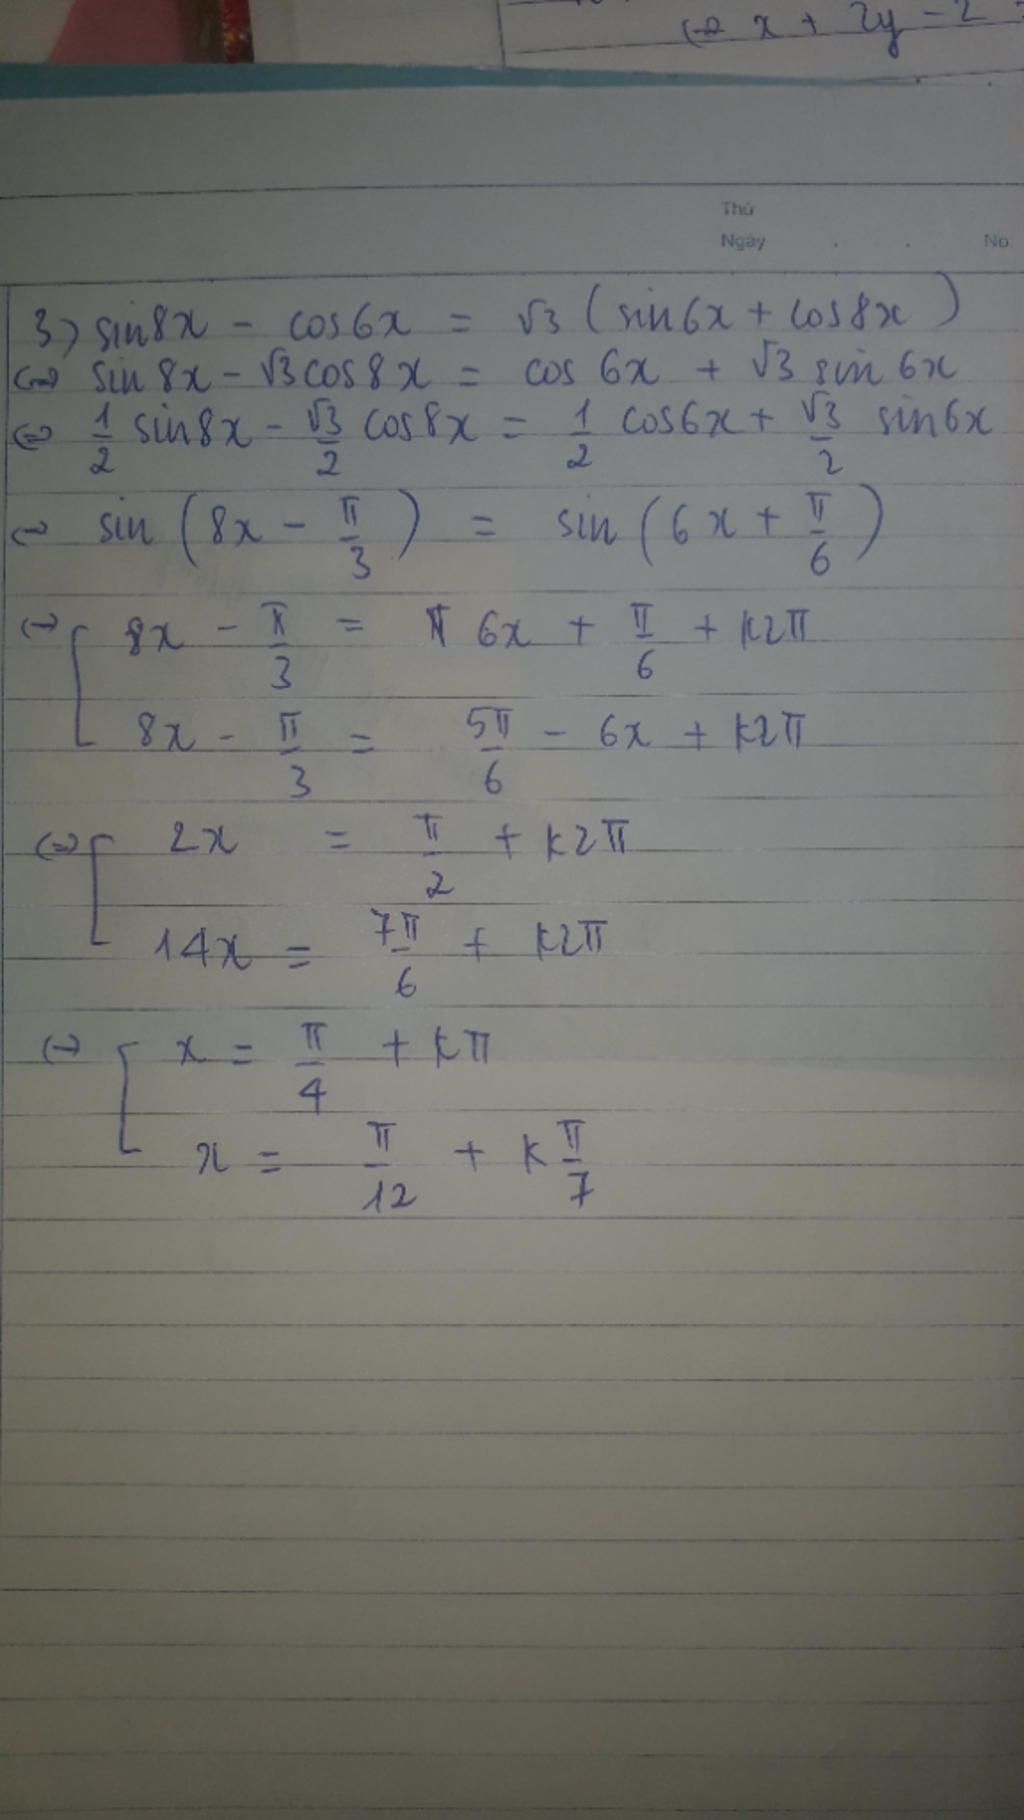 (=> x + 2y - 2
Thứ
Ngày . . No.
3) sin8x - cos6x = √3 (sin6x + cos8x)
<=> sin8x - √3cos8x = cos 6x + √3 sin 6x
<=> 1/2 sin8x - √3/2 cos8x = 1/2 cos6x + √3/2 sin6x
<=> sin (8x - π/3) = sin (6x + π/6)
<=> [ 8x - π/3 = 6x + π/6 + k2π
8x - π/3 = 5π/6 - 6x + k2π
<=> [ 2x = π/2 + k2π
14x = 7π/6 + k2π
<=> [ x = π/4 + kπ
x = π/12 + k π/7